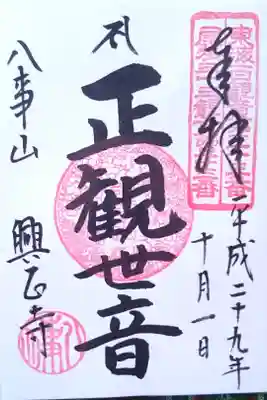 奉拝
平成二十九年
十月一日
正観世音
八事山
興正寺